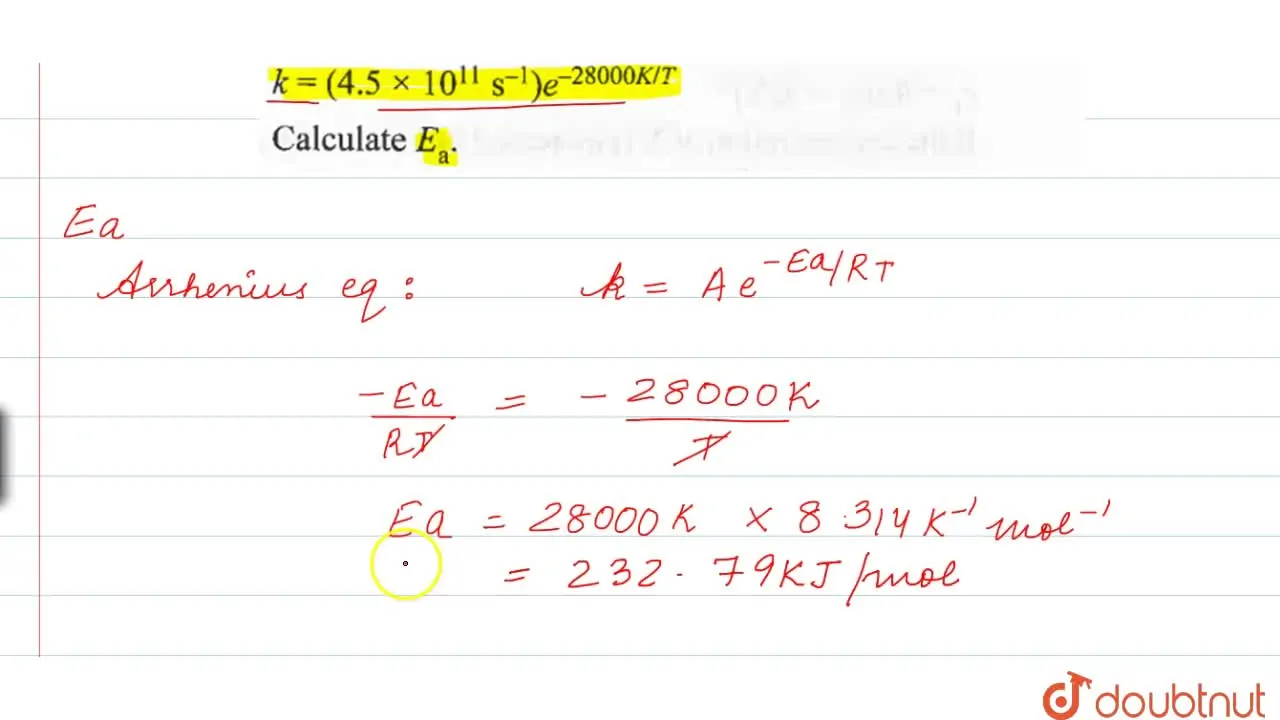 k = (4.5 × 10¹¹ s⁻¹)e⁻²⁸⁰⁰⁰ᴷ/ᵀ
Calculate Eₐ.
Ea
Arrhenius eq : k = A e^-Ea/RT
-Ea/RT = - 28000K/T
Ea = 28000 K × 8.314 K⁻¹ mol⁻¹
= 232.79KJ/mol
doubtnut